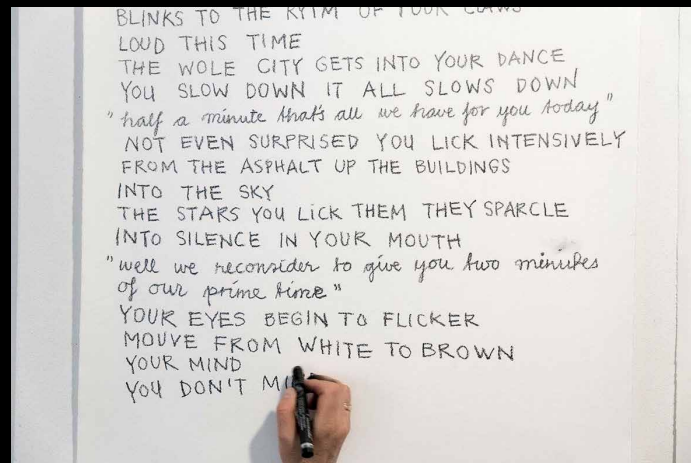 BLINKS TO THE RYTM OF YOUR CLAWS
LOUD THIS TIME
THE WOLE CITY GETS INTO YOUR DANCE
YOU SLOW DOWN IT ALL SLOWS DOWN
"half a minute that's all we have for you today"
NOT EVEN SURPRISED YOU LICK INTENSIVELY
FROM THE ASPHALT UP THE BUILDINGS
INTO THE SKY
THE STARS YOU LICK THEM THEY SPARCLE
INTO SILENCE IN YOUR MOUTH
"well we reconsider to give you two minutes
of our prime time"
YOUR EYES BEGIN TO FLICKER
MOUVE FROM WHITE TO BROWN
YOUR MIND
YOU DON'T